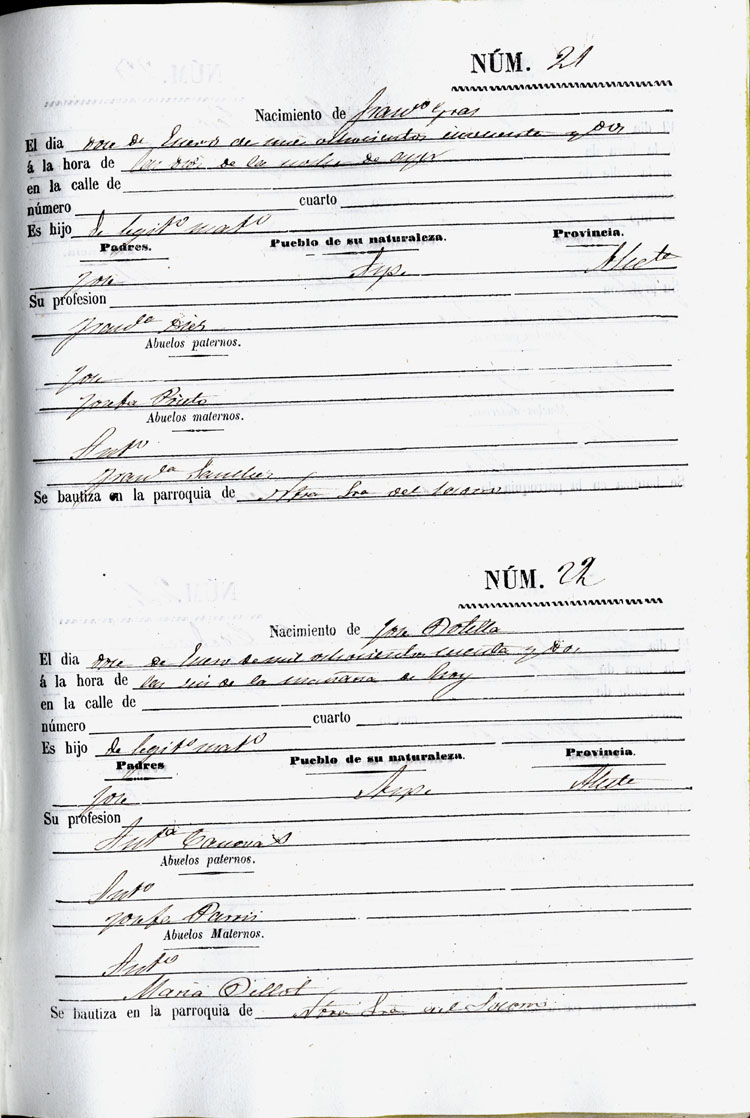 NÚM. 21
Nacimiento de Fran.co Gras
El dia doce de Enero de mil ochocientos cincuenta y dos
á la hora de las dies de la noche de ayer
en la calle de
número cuarto
Es hijo de legit.o mat.o
Padres. Pueblo de su naturaleza. Provincia.
Jose Aspe Alicte
Su profesion
Fran.ca
Abuelos paternos.
Jose
Josefa Prieto
Abuelos maternos.
Ant.o
Fran.ca Sanches
Se bautiza en la parroquia de Ntra Sra del Socorro
NÚM. 22
Nacimiento de Jose Botella
El dia doce de Enero de mil ochocientos cincuenta y dos
á la hora de las seis de la mañana de hoy
en la calle de
número cuarto
Es hijo de legit.o mat.o
Padres Pueblo de su naturaleza. Provincia.
Jose Aspe Alicte
Su profesion
Ant.a Canovas
Abuelos paternos.
Ant.o
Josefa
Abuelos Maternos.
Ant.o
Maria
Se bautiza en la parroquia de Ntra Sra del Socorro